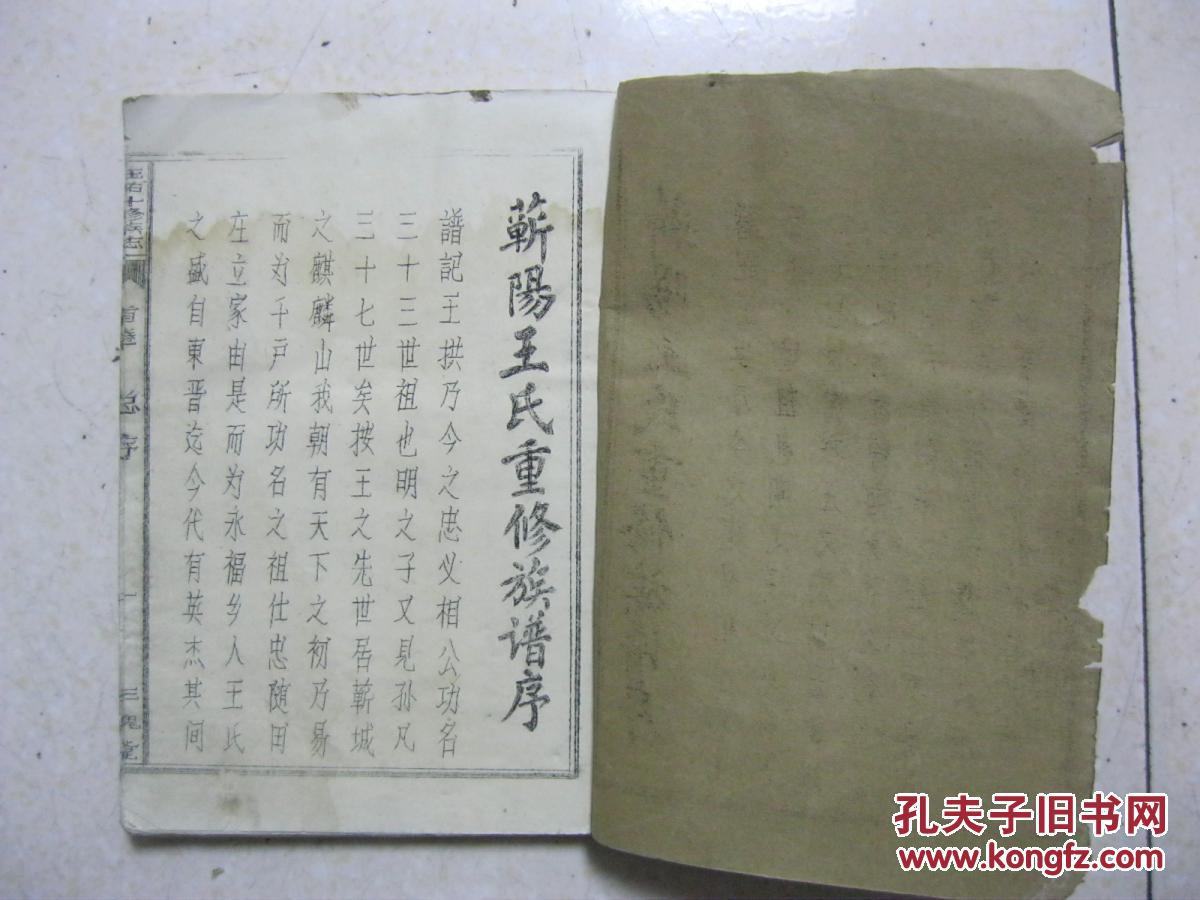 蘄陽王氏重修族谱序
譜記王拱乃今之忠义相公功名
三十三世祖也明之子又見孙凡
三十七世矣按王之先世居蘄城
之麒麟山我朝有天下之初乃易
而为千戶所功名之祖仕忠随田
在立家由是而为永福乡人王氏
之盛自東晋迄今代有英杰其间
首章
总序
三槐堂
孔夫子旧书网
www.kongfz.com